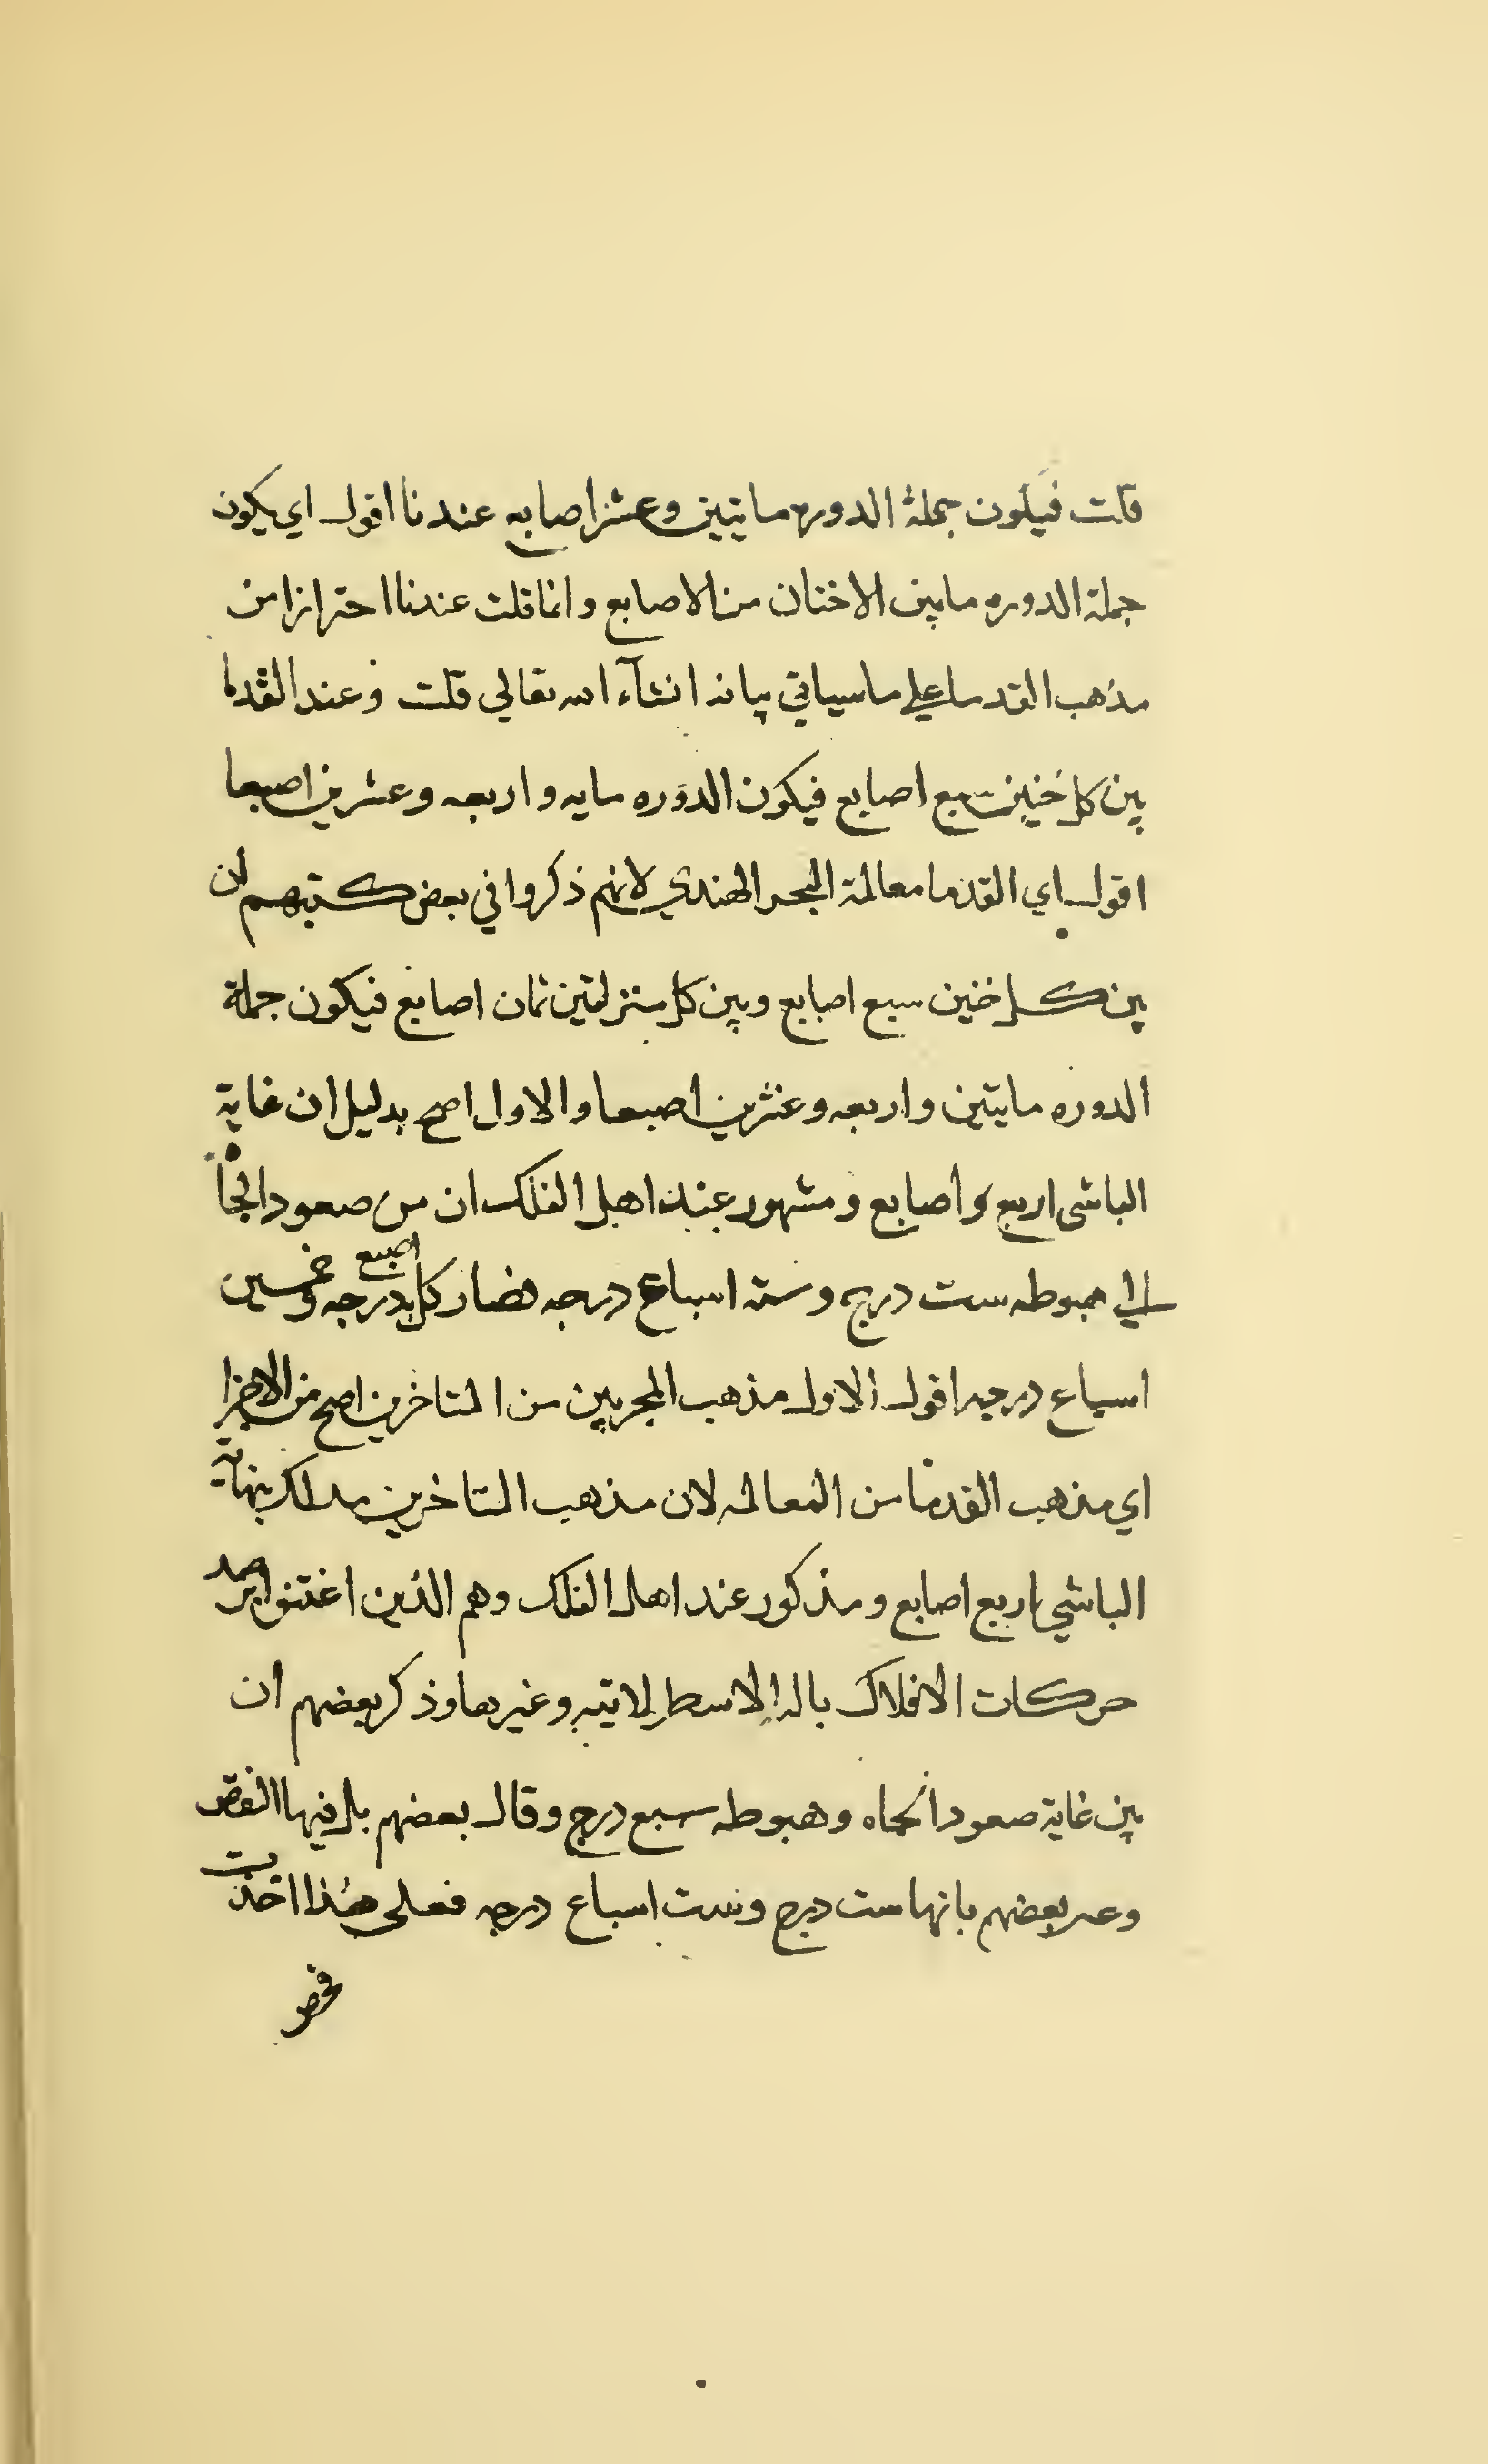 قلت فيكون جملة الدوره مايتين وعشر اصابع عندنا اقول اي يكون
جملة الدوره مابين الاخنان من الاصابع وانما قلت عندنا احترازا من
مذهب القدما علي ما سياتي بيانه انشآء الله تعالي قلت وعند القدما
بين كل خنين سبع اصابع فيكون الدوره مايه واربعه وعشرين اصبعا
اقول اي القدما معالمة البحر الهندي لانهم ذكروا في بعض كتبهم ان
بين كل خنين سبع اصابع وبين كل منزلتين ثمان اصابع فيكون جملة
الدوره مايتين واربعه وعشرين اصبعا والاول اصح بدليل ان غاية
الباشي اربع اصابع ومشهور عند اهل الفلك ان من صعود الجا
الي هبوطه ست درج وستة اسباع درجه فصار كل اصبع بدرجه وخمسين
اسباع درجه اقول الاول مذهب المجربين من المتاخرين اصح من الاخر
اي مذهب القدما من المعالمه لان مذهب المتاخرين بنهاية
الباشي اربع اصابع ومذكور عند اهل الفلك وهم الذين اعتنوا برصد
حركات الافلاك بالة الاسطرلابيه وغيرها وذكر بعضهم ان
بين غاية صعود الجاه وهبوطه سبع درج وقال بعضهم بل فيها النقص
وعبر بعضهم بانها ست درج وست اسباع درجه فعلى هذا اخذت